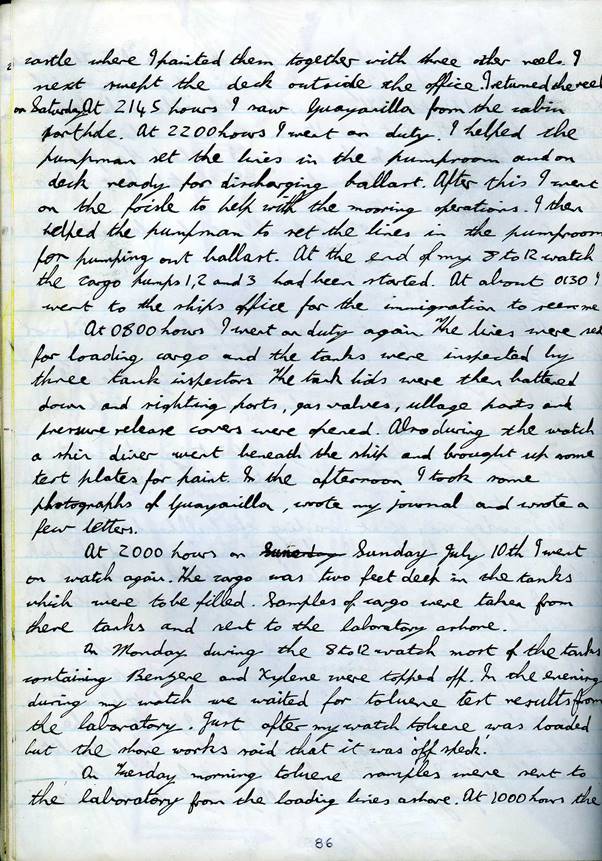 castle where I painted them together with three other reels. I
next swept the deck outside the office. I returned the reel
on Saturday. At 2145 hours I saw Guayanilla from the cabin
porthole. At 2200 hours I went on duty. I helped the
pumpman set the lines in the pumproom and on
deck ready for discharging ballast. After this I went
on the foc'sle to help with the mooring operations. I then
helped the pumpman to set the lines in the pumproom
for pumping out ballast. At the end of my 8 to 12 watch
the cargo pumps 1, 2 and 3 had been started. At about 0130 I
went to the ships office for the immigration to see me
At 0800 hours I went on duty again The lines were set
for loading cargo and the tanks were inspected by
three tank inspectors The tank lids were then battered
down and sighting ports, gas valves, ullage ports and
pressure release covers were opened. Also during the watch
a skin diver went beneath the ship and brought up some
test plates for paint. In the afternoon I took some
photographs of Guayanilla, wrote my journal and wrote a
few letters.
At 2000 hours on Sunday July 10th I went
on watch again. The cargo was two feet deep in the tanks
which were to be filled. Samples of cargo were taken from
these tanks and sent to the laboratory ashore.
On Monday during the 8 to 12 watch most of the tanks
containing Benzene and Xylene were topped off. In the evening
during my watch we waited for toluene test results from
the laboratory. Just after my watch toluene was loaded
but the shore works said that it was 'off speck.'
On Tuesday morning toluene samples were sent to
the laboratory from the loading lines ashore. At 1000 hours the
86